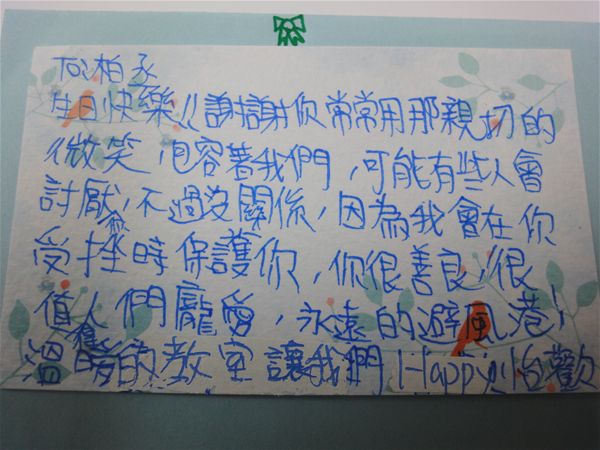 柏丞
生日快樂!!謝謝你常常用那親切的
微笑,包容著我們,可能有些人會
討厭,不過沒關係,因為我會在你
受挫時保護你,你很善良,很
值人們龐愛,永遠的避風港!
溫暖的教室讓我們Happy!怡歡